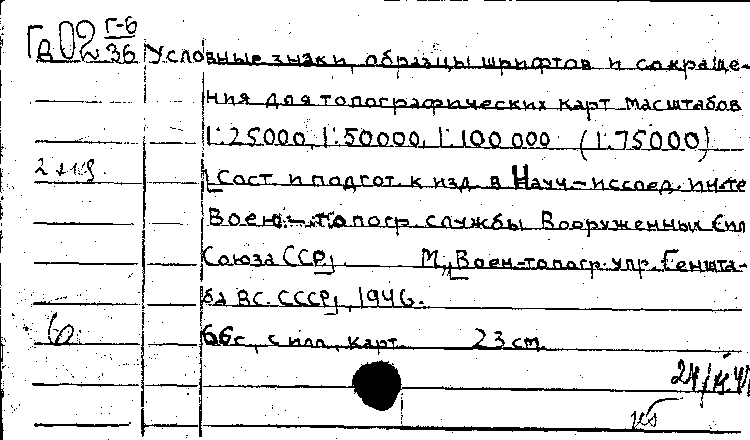 Гд02 Г-6/36 Условные знаки, образцы шрифтов и сокраще-
ния для топографических карт масштабов
1:25000, 1:50000, 1:100 000 (1:75000)
[Сост. и подгот. к изд. в Науч.-исслед. ин-те
Воен.-топогр. службы Вооруженных Сил
Союза ССР]. М., [Воен-топогр. упр. Геншта-
ба ВС. СССР], 1946.
66с., с илл., карт. 23 cm.